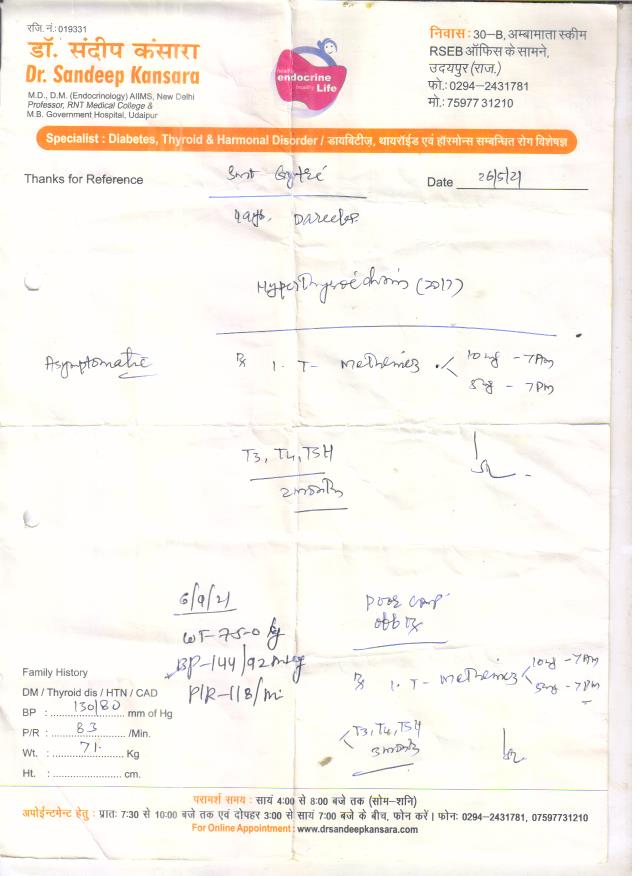 रजि. नं.: 019331
डॉ. संदीप कंसारा
Dr. Sandeep Kansara
M.D., D.M. (Endocrinology) AIIMS, New Delhi
Professor, RNT Medical College &
M.B. Government Hospital, Udaipur
healthy
endocrine
healthy Life
निवास: 30-B, अम्बामाता स्कीम
RSEB ऑफिस के सामने,
उदयपुर (राज.)
फो.: 0294-2431781
मो.: 75977 31210
Specialist : Diabetes, Thyroid & Harmonal Disorder / डायबिटीज़, थायरॉईड एवं हॉरमोन्स सम्बन्धित रोग विशेषज्ञ
Thanks for Reference
Smt
Date 26/5/21
Hyperthyroidism (2017)
Asymptomatic
Rx 1. T- Methimez < 10mg - 7AM
5mg - 7PM
T3, T4, TSH
2 months
6/9/21
WT-75-0 kg
BP-144/92 mmHg
P/R-118/mi
Poor comp
off Rx
Rx 1. T- Methimez < 10mg - 7AM
5mg - 7PM
T3, T4, TSH
3 months
Family History
DM / Thyroid dis / HTN / CAD
BP : 130/80 mm of Hg
P/R : 83 /Min.
Wt. : 71. Kg
Ht. : ........................ cm.
परामर्श समय : सायं 4:00 से 8:00 बजे तक (सोम-शनि)
अपोईन्टमेन्ट हेतु : प्रातः 7:30 से 10:00 बजे तक एवं दोपहर 3:00 से सायं 7:00 बजे के बीच, फोन करें । फोनः 0294-2431781, 07597731210
For Online Appointment : www.drsandeepkansara.com